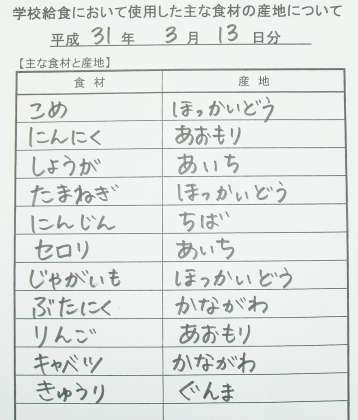 学校給食において使用した主な食材の産地について
平成 31 年 3 月 13 日分
【主な食材と産地】
食材 産地
こめ ほっかいどう
にんにく あおもり
しょうが あいち
たまねぎ ほっかいどう
にんじん ちば
セロリ あいち
じゃがいも ほっかいどう
ぶたにく かながわ
りんご あおもり
キャベツ かながわ
きゅうり ぐんま